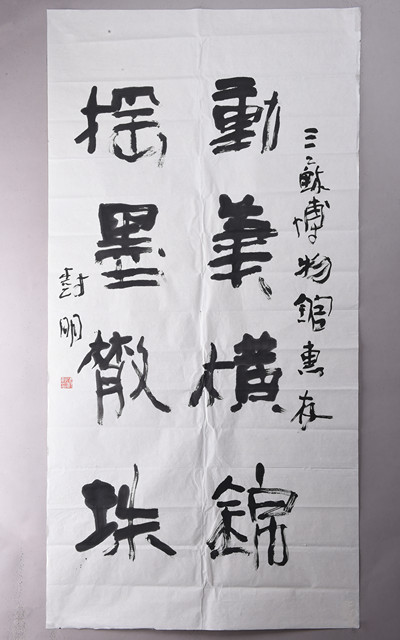 三蘇博物館惠存
動筆橫錦
搖墨散珠
封明